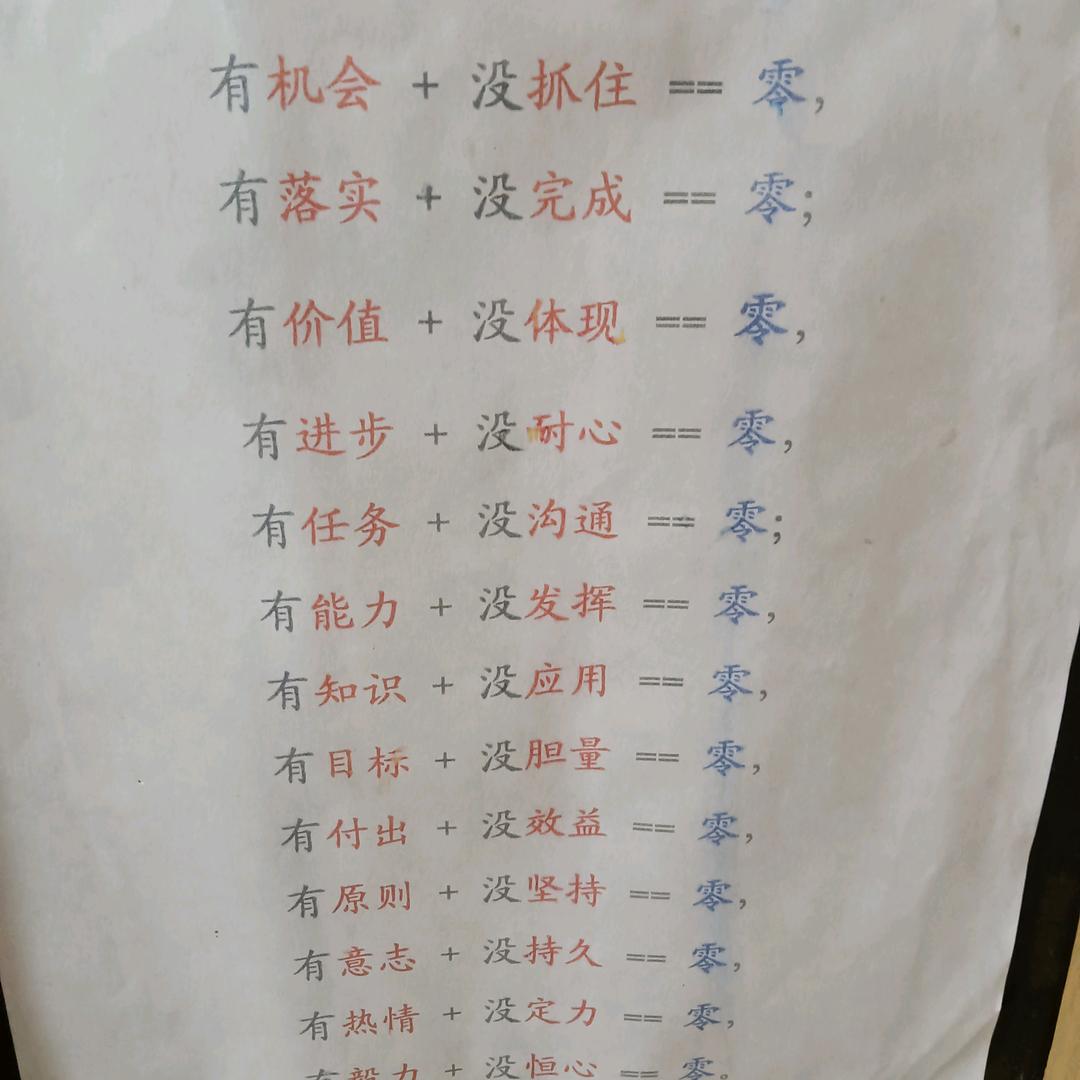 有机会 + 没抓住 == 零,
有落实 + 没完成 == 零;
有价值 + 没体现 == 零,
有进步 + 没耐心 == 零,
有任务 + 没沟通 == 零;
有能力 + 没发挥 == 零,
有知识 + 没应用 == 零,
有目标 + 没胆量 == 零,
有付出 + 没效益 == 零,
有原则 + 没坚持 == 零,
有意志 + 没持久 == 零,
有热情 + 没定力 == 零,
有毅力 + 没恒心 == 零。